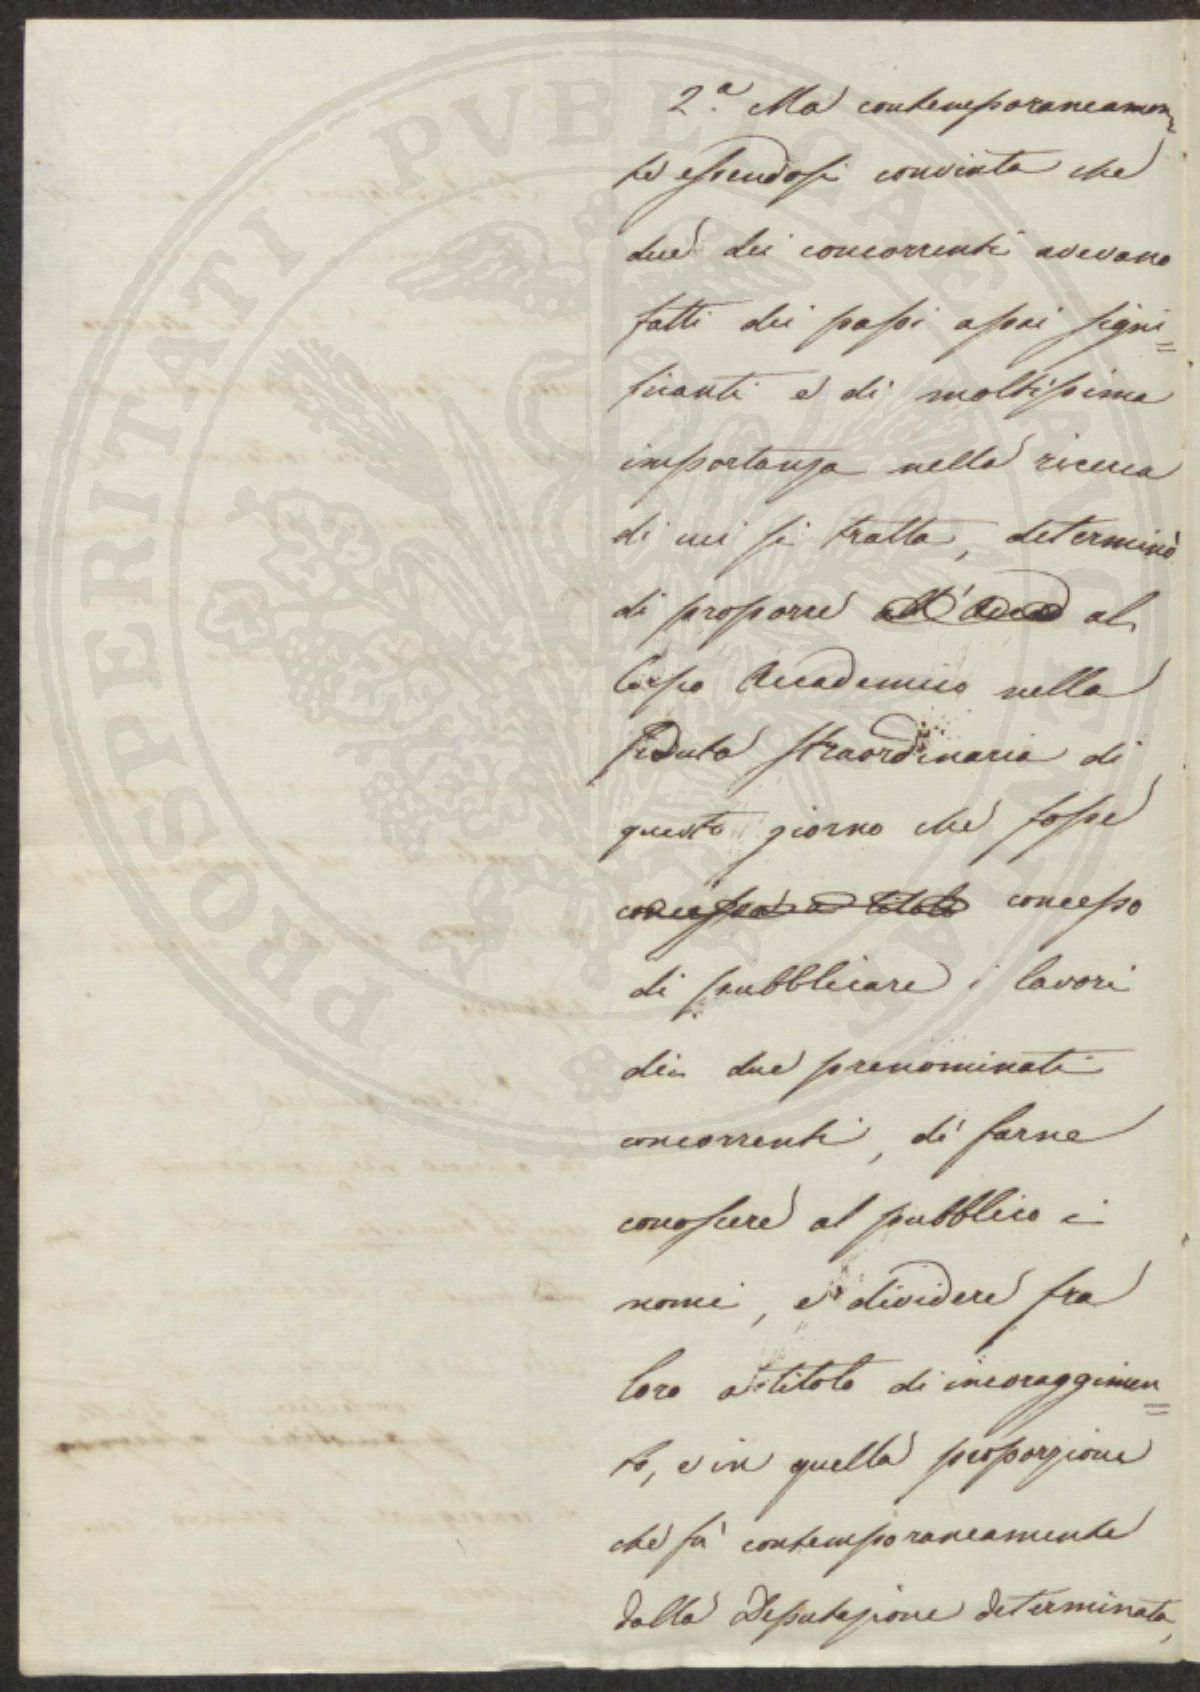 PROSPERITATI PVBLICAE AVGENDAE
2.a Ma contemporaneamen=
te essendosi convinta che
due dei concorrenti avevano
fatti dei passi assai signi=
ficanti e di moltissima
importanza nella ricerca
di cui si tratta, determinò
di proporre all'Acad al
Corpo Accademico nella
Seduta straordinaria di
questo giorno che fosse
concessa a titolo concesso
di pubblicare i lavori
dei due prenominati
concorrenti, di farne
conoscere al pubblico i
nomi, e dividere fra
loro a titolo di incoraggimen=
to, e in quella proporzione
che fu contemporaneamente
dalla Deputazione determinata,